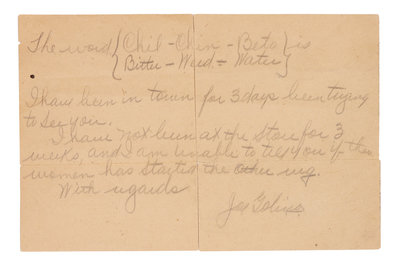 The word { Chil - Chin - Beto } is
{ Bitter - Weed - Water }
I have been in town for 3 days been trying
to see you.
I have not been at the Store for 3
weeks, and I am unable to tell you if the
women has started the other rug.
With regards
Joe